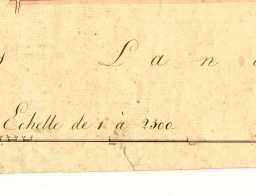 L a n
Echelle de 1 à 2500.